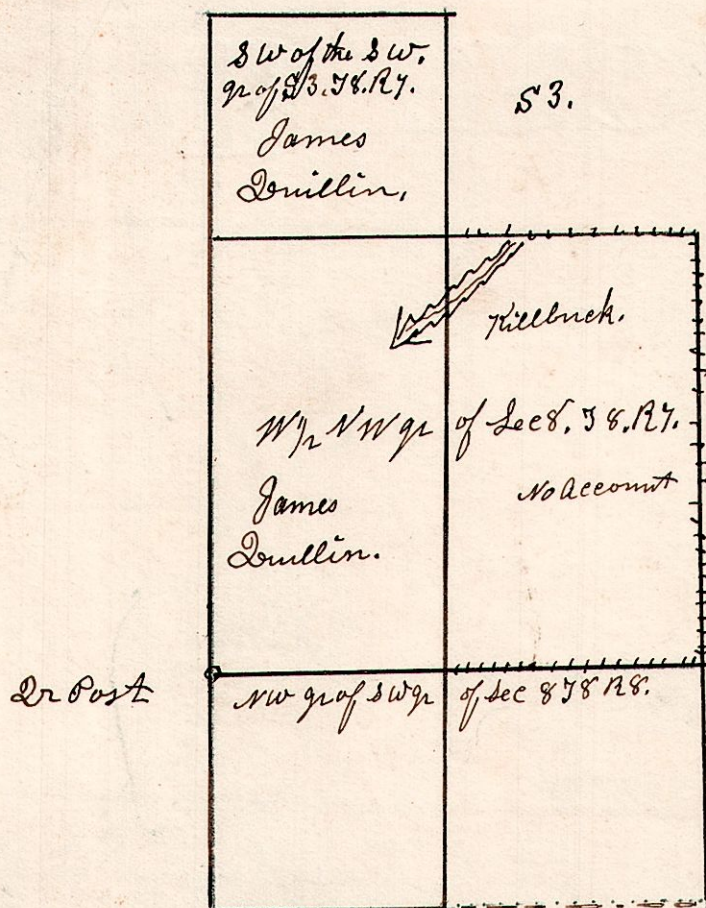 SW of the SW.
qr of S3. T8. R7.
James
Quillin,
S3.
Killbuck.
W1/2 NW qr of Sec 8. T8. R7.
No Account
James
Quillin.
Qr Post
NW qr of SW qr of Sec 8 T8 R8.